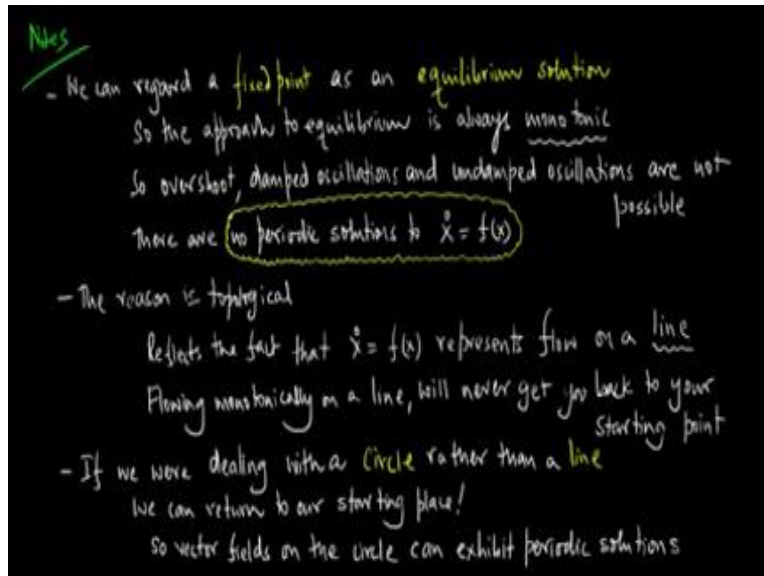 Notes
- We can regard a fixed point as an equilibrium solution
So the approach to equilibrium is always monotonic
So overshoot, damped oscillations and undamped oscillations are not
possible
There are no periodic solutions to ẋ = f(x)
- The reason is topological
Reflects the fact that ẋ = f(x) represents flow on a line
Flowing monotonically on a line, will never get you back to your
starting point
- If we were dealing with a circle rather than a line
we can return to our starting place!
So vector fields on the circle can exhibit periodic solutions